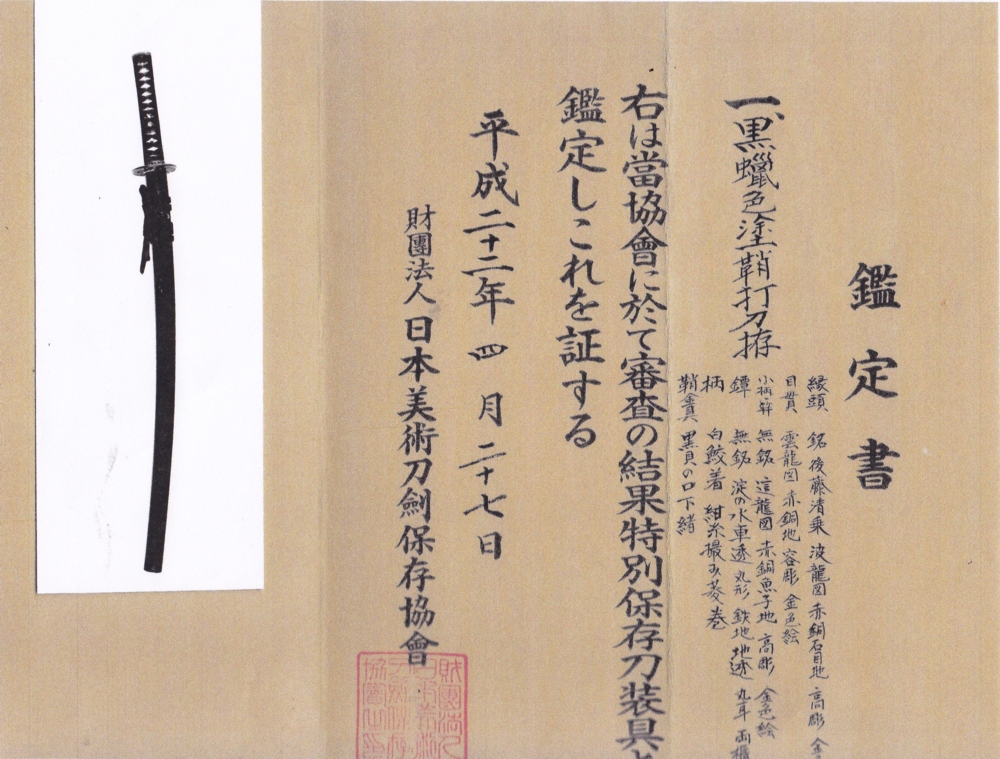 鑑定書
一、黒蠟色塗鞘打刀拵
縁頭 銘 後藤清乗 波龍図 赤銅石目地 高彫 金
目貫 雲龍図 赤銅地 容彫 金色絵
小柄・笄 無銘 這龍図 赤銅魚子地 高彫 金色絵
鐔 無銘 淀の水車透 丸形 鉄地 地透 丸耳 両櫃
柄 白鮫着 紺糸撮み菱巻
鞘 黒貝の口下緒
右は當協會に於て審査の結果特別保存刀装具と
鑑定しこれを証する
平成二十二年四月二十七日
財團法人日本美術刀劍保存協會